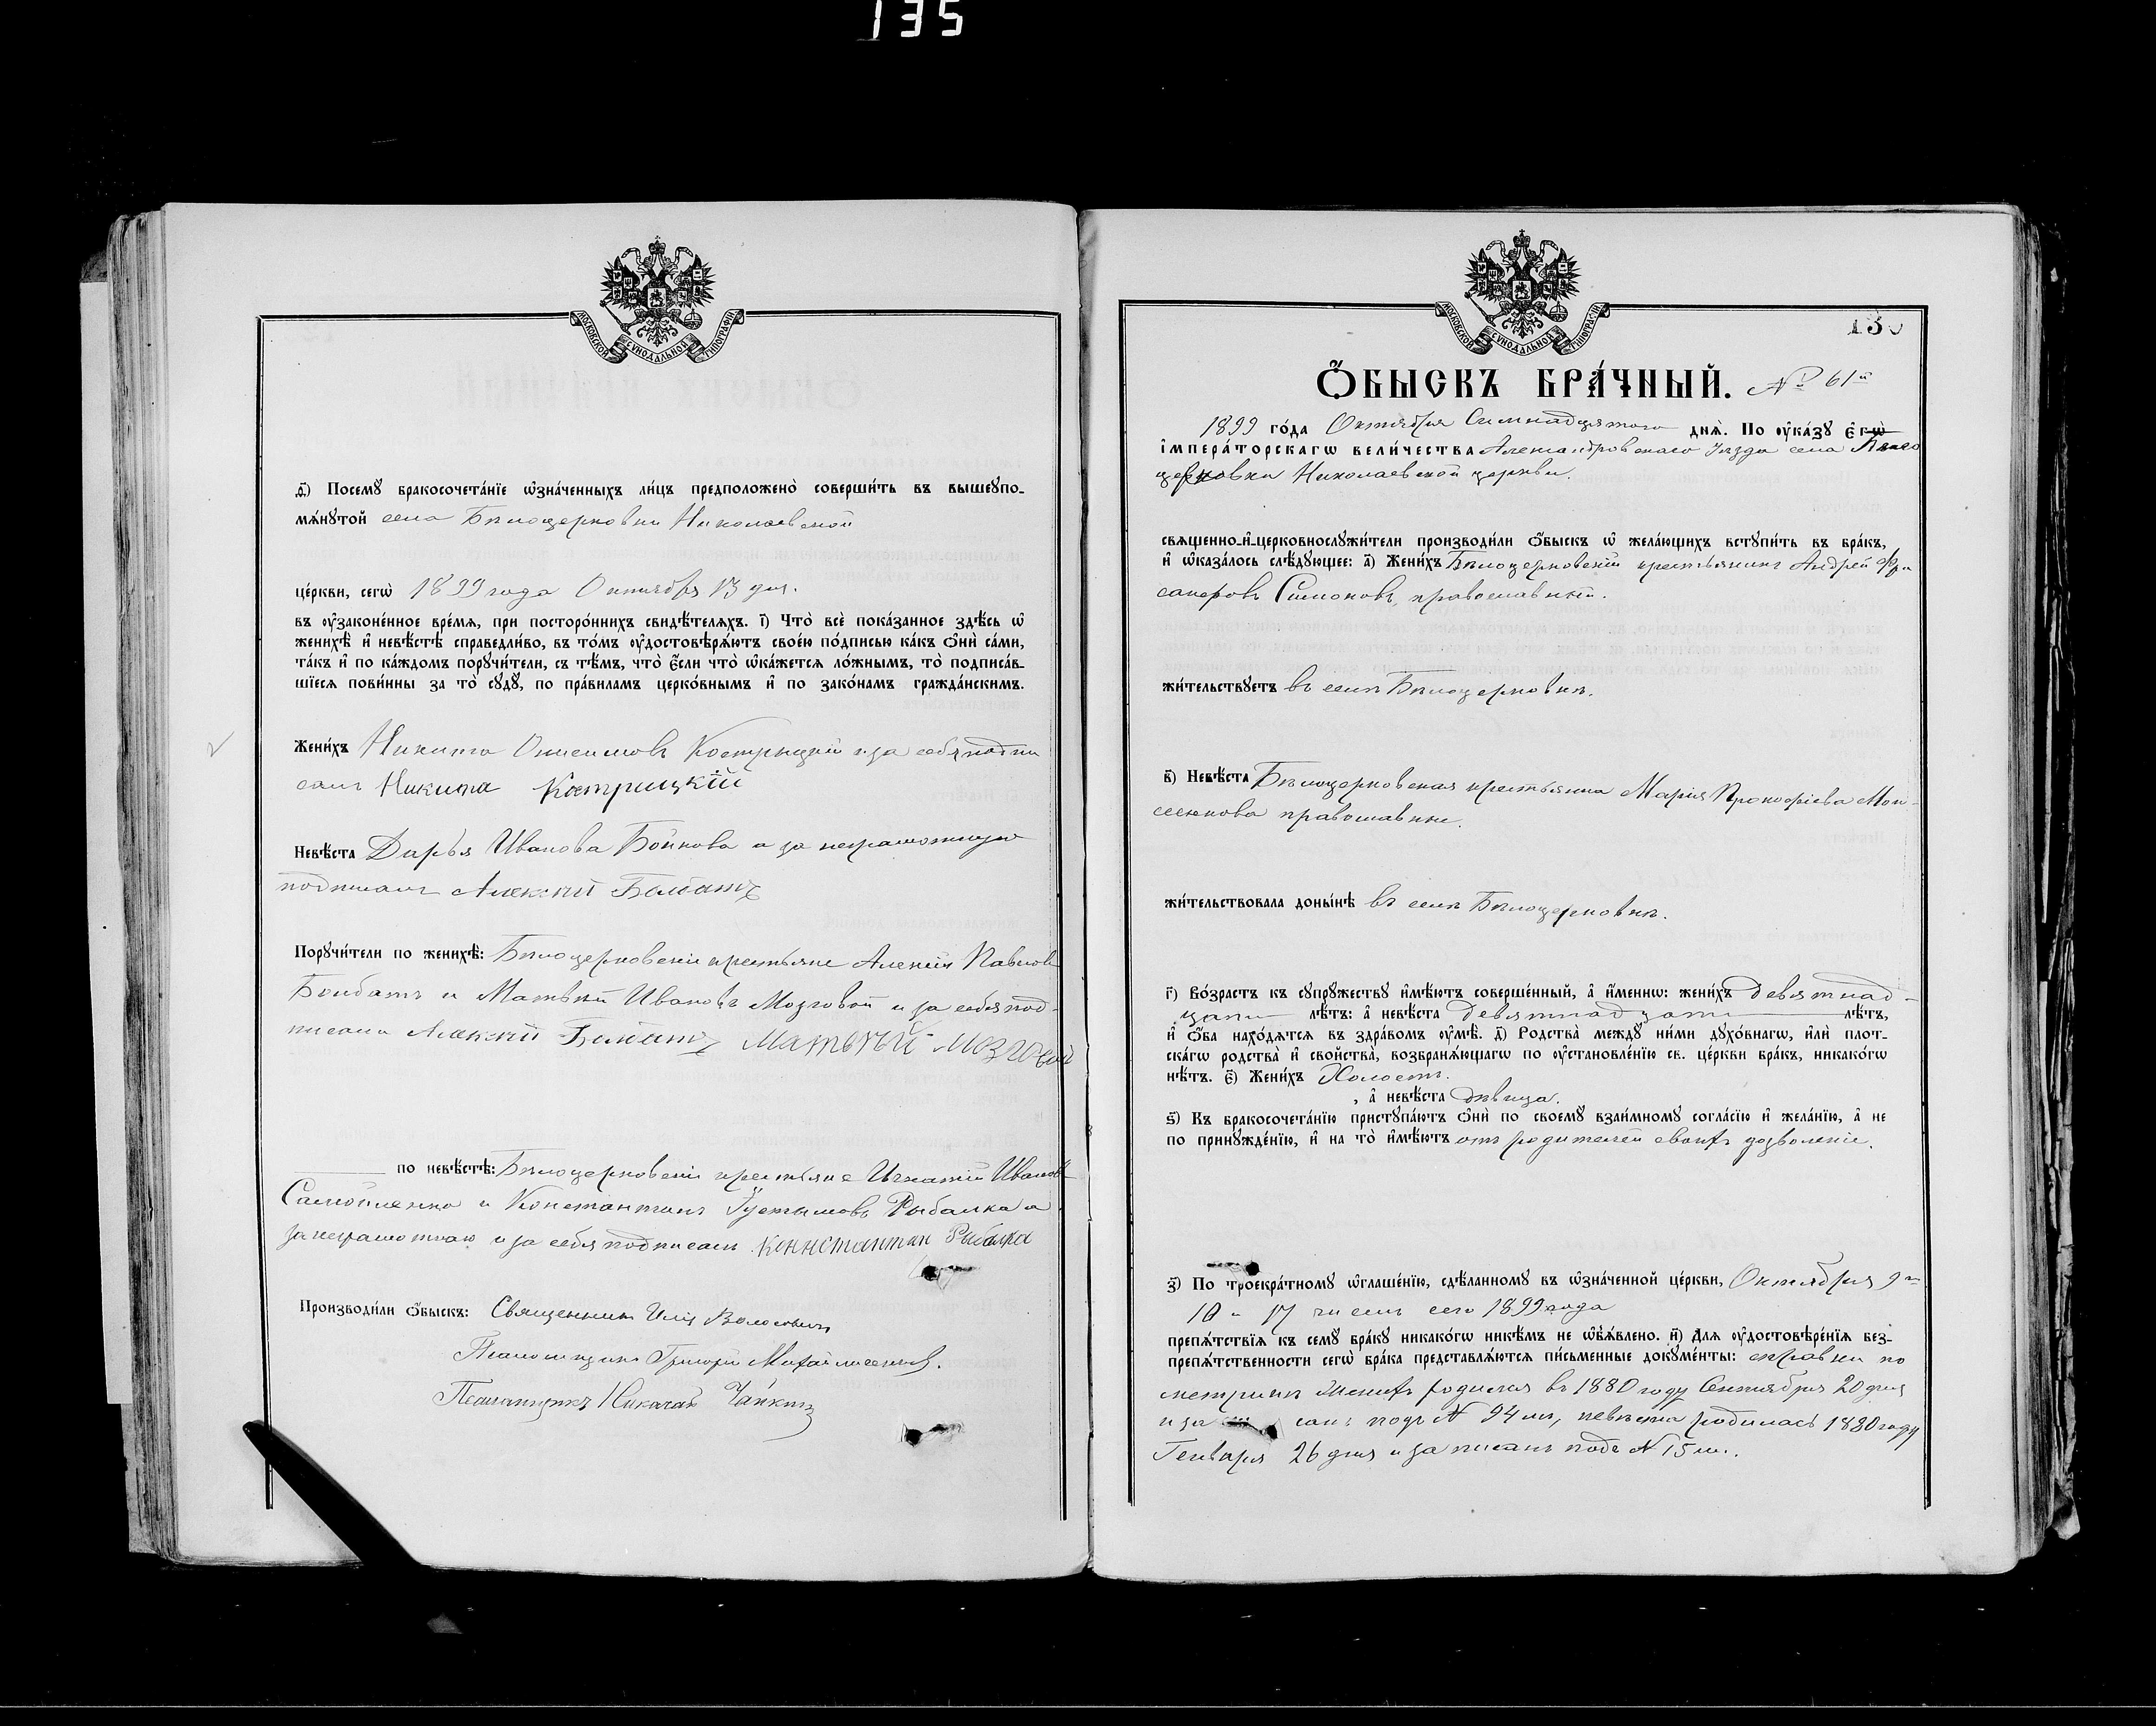 135
МОСКОВСКОЙ СѴНОДАЛЬНОЙ ТИПОГРАФІИ
ѳ҃) Посемꙋ бракосочета́нїе ѡзна́ченныхъ ли́цъ предположено̀ соверши́ть въ вышеꙋпо-
мѧ́нꙋтой села Бѣлоцерковки Николаевской
це́ркви, сегѡ̀ 1899 года Октября 13 дня.
въ ᲂу҆зако́ненное вре́мѧ, при посторо́ннихъ свидѣ́телѧхъ. і҃) Что̀ всѐ пока́занное здѣ́сь ѡ҆
женихѣ̀ и҆ невѣ́стѣ справедли́во, въ то́мъ ᲂу҆достовѣрѧ́ютъ свое́ю по́дписью ка́къ ѻ҆нѝ са́ми,
та́къ и҆ по ка́ждомъ порꙋчи́тели, съ тѣ́мъ, что̀ є҆́сли что̀ ѡ҆ка́жетсѧ ло́жнымъ, то̀ подписа́в-
шїесѧ пови́нны за то̀ сꙋдꙋ̀, по пра́виламъ церко́внымъ и҆ по зако́намъ гражда́нскимъ.
Жени́хъ Никита Онисимовъ Кострицкій и за себя подпи
салъ Никита Кострицкій
Невѣ́ста Дарья Иванова Бойкова а за неграмотную
подписалъ Алексѣй Болбатъ
Порꙋчи́тели по женихѣ̀: Бѣлоцерковскіе крестьяне Алексѣй Павловъ
Болбатъ и Матвѣй Ивановъ Мозговой и за себя под-
писали Алексѣй Болбатъ Матвѣй Мозговой
по невѣ́стѣ: Бѣлоцерковскіе крестьяне Игнатій Ивановъ
Самойленко и Константинъ Рыбалка а
за неграмотнаго и за себя подписалъ Коннстантин Рыбалка
Производи́ли ѻ҆́быскъ: Священникъ Илія Волосевичъ
Псаломщикъ Григорій
Псаломщикъ Николай Чайкинъ
МОСКОВСКОЙ СѴНОДАЛЬНОЙ ТИПОГРАФІИ
Ѻ҆́БЫСКЪ БРА́ЧНЫЙ. № 61й
1899 го́да Октября Семнадцятого днѧ̀. По ᲂу҆ка́зꙋ є҆гѡ̀
і҆мпера́торскагѡ вели́чества Александровскаго Уѣзда села Бѣло
церковки Николаевской церкви.
свѧщенно-и҆-церковнослꙋжи́тели производи́ли ѻ҆́быскъ ѡ҆ жела́ющихъ встꙋпи́ть въ бра́къ,
и҆ ѡ҆каза́лось слѣ́дꙋющее: а҃) Жени́хъ Бѣлоцерковскій крестьянинъ Андрей
Симоновъ, православный.
жи́тельствꙋетъ въ селѣ Бѣлоцерковкѣ.
в҃) Невѣ́ста Бѣлоцерковская крестьянка Марія Прокофіева Мои-
сеенкова православне.
жи́тельствовала доны́нѣ въ селѣ Бѣлоцерковкѣ.
г҃) Во́зрастъ къ сꙋпрꙋ́жествꙋ и҆мѣ́ютъ соверше́нный, а҆ и҆́меннѡ: жени́хъ девятнад-
цати лѣ́тъ: а҆ невѣ́ста девятнадцати лѣ́тъ,
и҆ ѻ҆́ба нахо́дѧтсѧ въ здра́вомъ ᲂу҆мѣ̀. д҃) Родства̀ междꙋ̀ ни́ми дꙋхо́внагѡ, и҆лѝ плот-
ска́гѡ родства̀ и҆ сво́йства, возбранѧ́ющагѡ по ᲂу҆становле́нїю св. це́ркви бра́къ, никако́гѡ
нѣ́тъ. є҃) Жени́хъ Холостъ.
, а҆ невѣ́ста дѣвица.
ѕ҃) Къ бракосочета́нїю пристꙋпа́ютъ ѻ҆нѝ по своемꙋ̀ взаи́мномꙋ согла́сїю и҆ жела́нїю, а҆ не
по принꙋжде́нїю, и҆ на то̀ и҆мѣ́ютъ отъ родителей своихъ дозволеніе.
з҃) По троекра́тномꙋ ѡ҆глаше́нїю, сдѣ́ланномꙋ въ ѡ҆зна́ченной це́ркви, Октября 9го
10 и 17 числъ сего 1899 года
препѧ́тствїѧ къ семꙋ̀ бра́кꙋ никако́гѡ никѣ́мъ не ѡ҆б̾ѧ́влено. и҃) Длѧ ᲂу҆достовѣре́нїѧ без-
препѧ́тственности сегѡ̀ бра́ка представлѧ́ютсѧ пи́сьменные докꙋме́нты: справки по
метрикѣ женихъ родился въ 1880 году Сентября 20 дня
и за санъ подъ № 94 мъ, невѣста родилась 1880 году
Генваря 26 дня и записанъ подъ № 15 мъ.